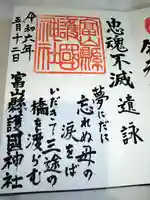 忠魂不滅遺詠
夢にだに
忘れぬ母の
涙をば
いだきて三途の
橋を渡らむ
富山縣護國神社
令和六年
五月十二日
富山縣護國神社